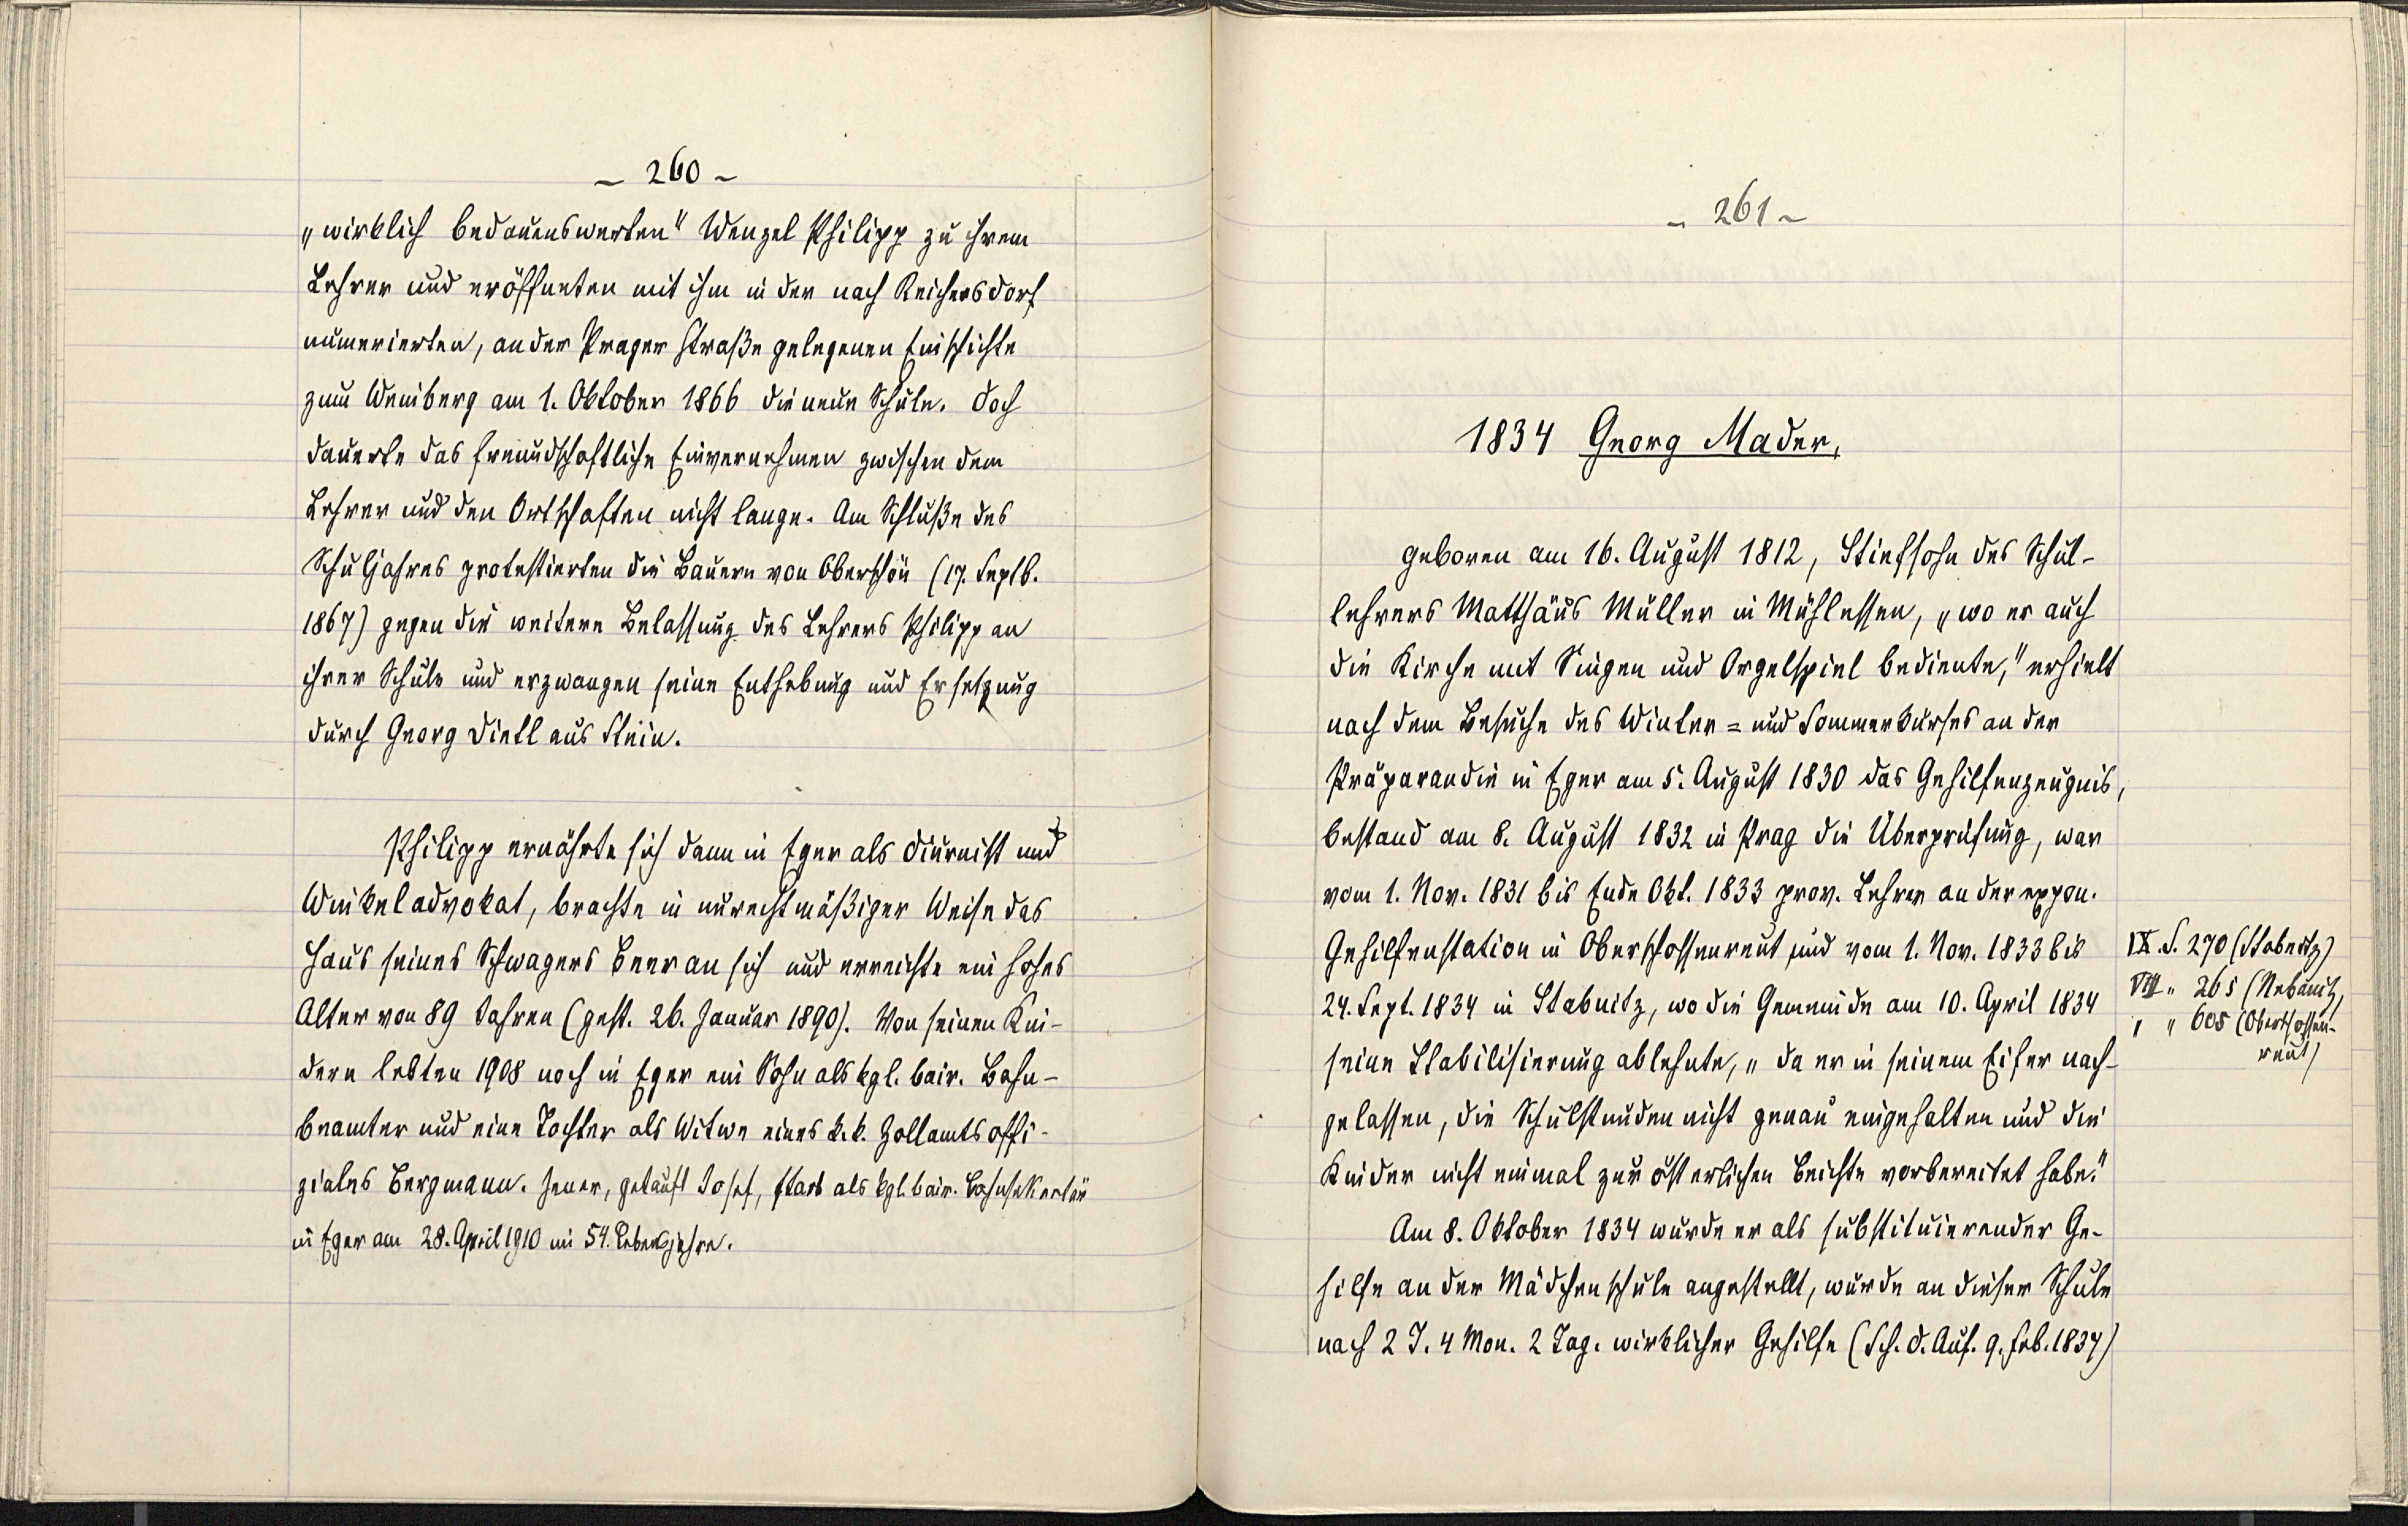 – 260 –
„wirklich bedauenswerten" Wenzel Philipp zu ihrem
Lehrer und eröffneten mit ihm in der nach Reichersdorf
numerierten, an der Prager Straße gelegenen Einschichte
zum Weinberg am 1. Oktober 1866 die neue Schule. Doch
dauerte das freundschaftliche Einvernehmen zwischen dem
Lehrer und den Ortschaften nicht lange. Am Schluße des
Schuljahres protestierten die Bauern von Oberschön (17. Septb.
1867) gegen die weitere Belassung des Lehrers Philipp an
ihrer Schule und erzwangen seine Enthebung und Ersetzung
durch Georg Dietl aus Stein.
Philipp ernährte sich dann in Eger als Diurnist und
Winkeladvokat, brachte in unrechtmäßiger Weise das
Haus seines Schwagers Beer an sich und erreichte ein hohes
Alter von 89 Jahren (gest. 26. Januar 1890). Von seinen Kin-
dern lebten 1908 noch in Eger ein Sohn als kgl. bair. Bahn-
beamter und eine Tochter als Witwe eines k.k. Zollamtsoffi-
zials Bergmann. Jener, getauft Josef, starb als kgl. bair. Bahnsekretär
in Eger am 28. April 1910 im 54. Lebensjahre.
– 261 –
1834 Georg Mader,
geboren am 16. August 1812, Stiefsohn des Schul-
lehrers Matthäus Müller in Mühlessen, „wo er auch
die Kirche mit Singen und Orgelspiel bediente," erhielt
nach dem Besuche des Winter= und Sommerkurses an der
Präparandie in Eger am 5. August 1830 das Gehilfenzeugnis,
bestand am 8. August 1832 in Prag die Überprüfung, war
vom 1. Nov. 1831 bis Ende Okt. 1833 prov. Lehrer an der expon.
Gehilfenstation in Oberschossenreut und vom 1. Nov. 1833 bis
24. Sept. 1834 in Stabnitz, wo die Gemeinde am 10. April 1834
seine Stabilisierung ablehnte, „da er in seinem Eifer nach-
gelassen, die Schulstunden nicht genau eingehalten und die
Kinder nicht einmal zur österlichen Beichte vorbereitet habe."
Am 8. Oktober 1834 wurde er als substituierender Ge-
hilfe an der Mädchenschule angestellt, wurde an dieser Schule
nach 2 J. 4 Mon. 2 Tag. wirklicher Gehilfe (Sch. d. Auf. 9. Feb. 1837)
IX. S. 270 (Stabnitz)
VIII „ 265 (Nebanitz,
„ „ 605 (Oberschossen-
reut)